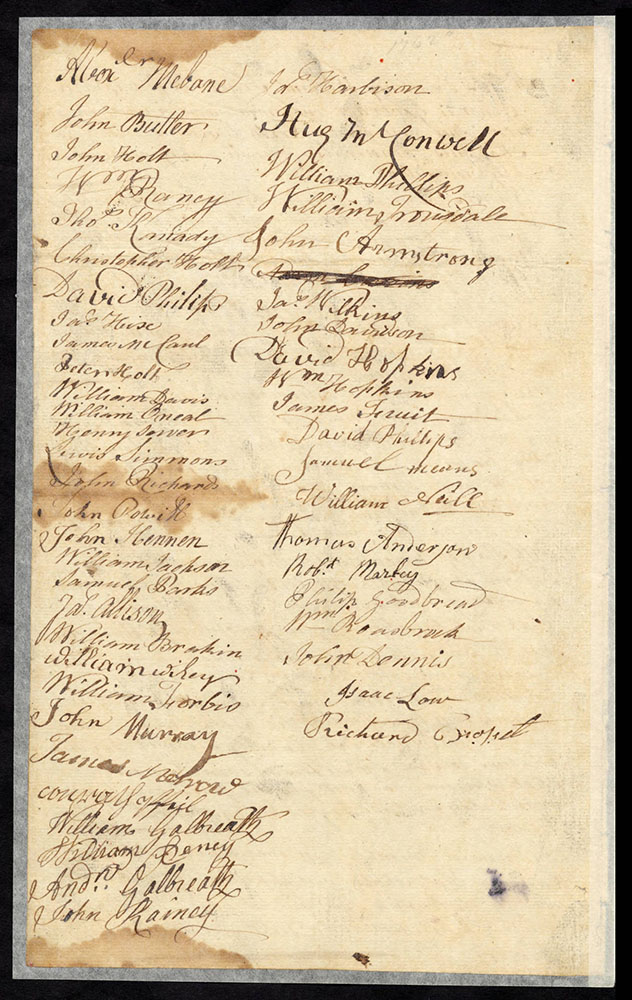 Alexr Mebane
John Butler
John Holt
Wm Raney
Thos Kanady
Christopher Holt
David Philips
Jas Hise
James McCaul
Peter Holt
William Davis
William Oneal
Henry Sower
Lewis Simmons
John Richards
John Powill
John Hennen
William Jackson
Samuel Parks
Js. Allison
William Brakin
William Wiley
William Forbis
John Murray
James
William Galbreath
William Reney
Andrw Galbreath
John Rainey
Js Harbison
Hug McConwell
William Phillips
William Trousdale
John Armstrong
Jas Wilkins
John Davidson
David Hopkins
Wm Hopkins
James
David Philips
Samuel means
William Null
Thomas Anderson
Robt Marley
Philip Goodbread
Wm
John Dennis
Isaac Low
Richard